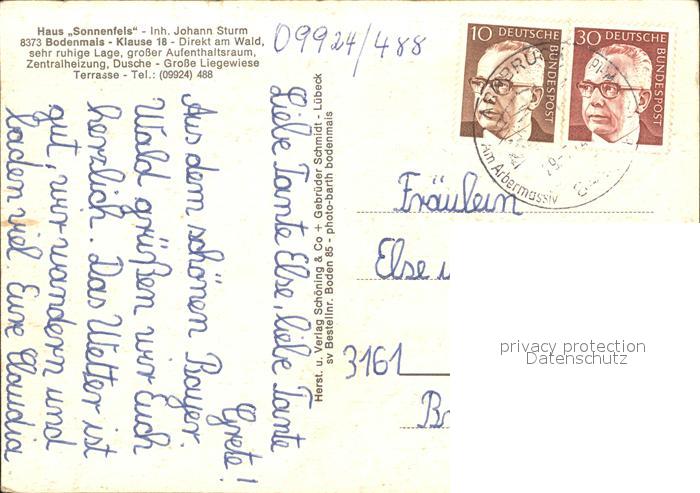 Haus „Sonnenfels" - Inh. Johann Sturm
8373 Bodenmais - Klause 18 - Direkt am Wald,
sehr ruhige Lage, großer Aufenthaltsraum,
Zentralheizung, Dusche - Große Liegewiese
Terrasse - Tel.: (09924) 488
09924/488
Liebe Tante Else, liebe Tante
Grete!
Aus dem schönen Bayer.
Wald grüßen wir Euch
herzlich. Das Wetter ist
gut, wir wandern und
baden viel Eure Claudia
Herst. u. Verlag Schöning & Co + Gebrüder Schmidt - Lübeck
sv Bestellnr. Boden 85 - photo-barth bodenmais
10 DEUTSCHE
BUNDESPOST
30 DEUTSCHE
BUNDESPOST
Am Arbermassiv
Fräulein
Else
3161
privacy protection
Datenschutz